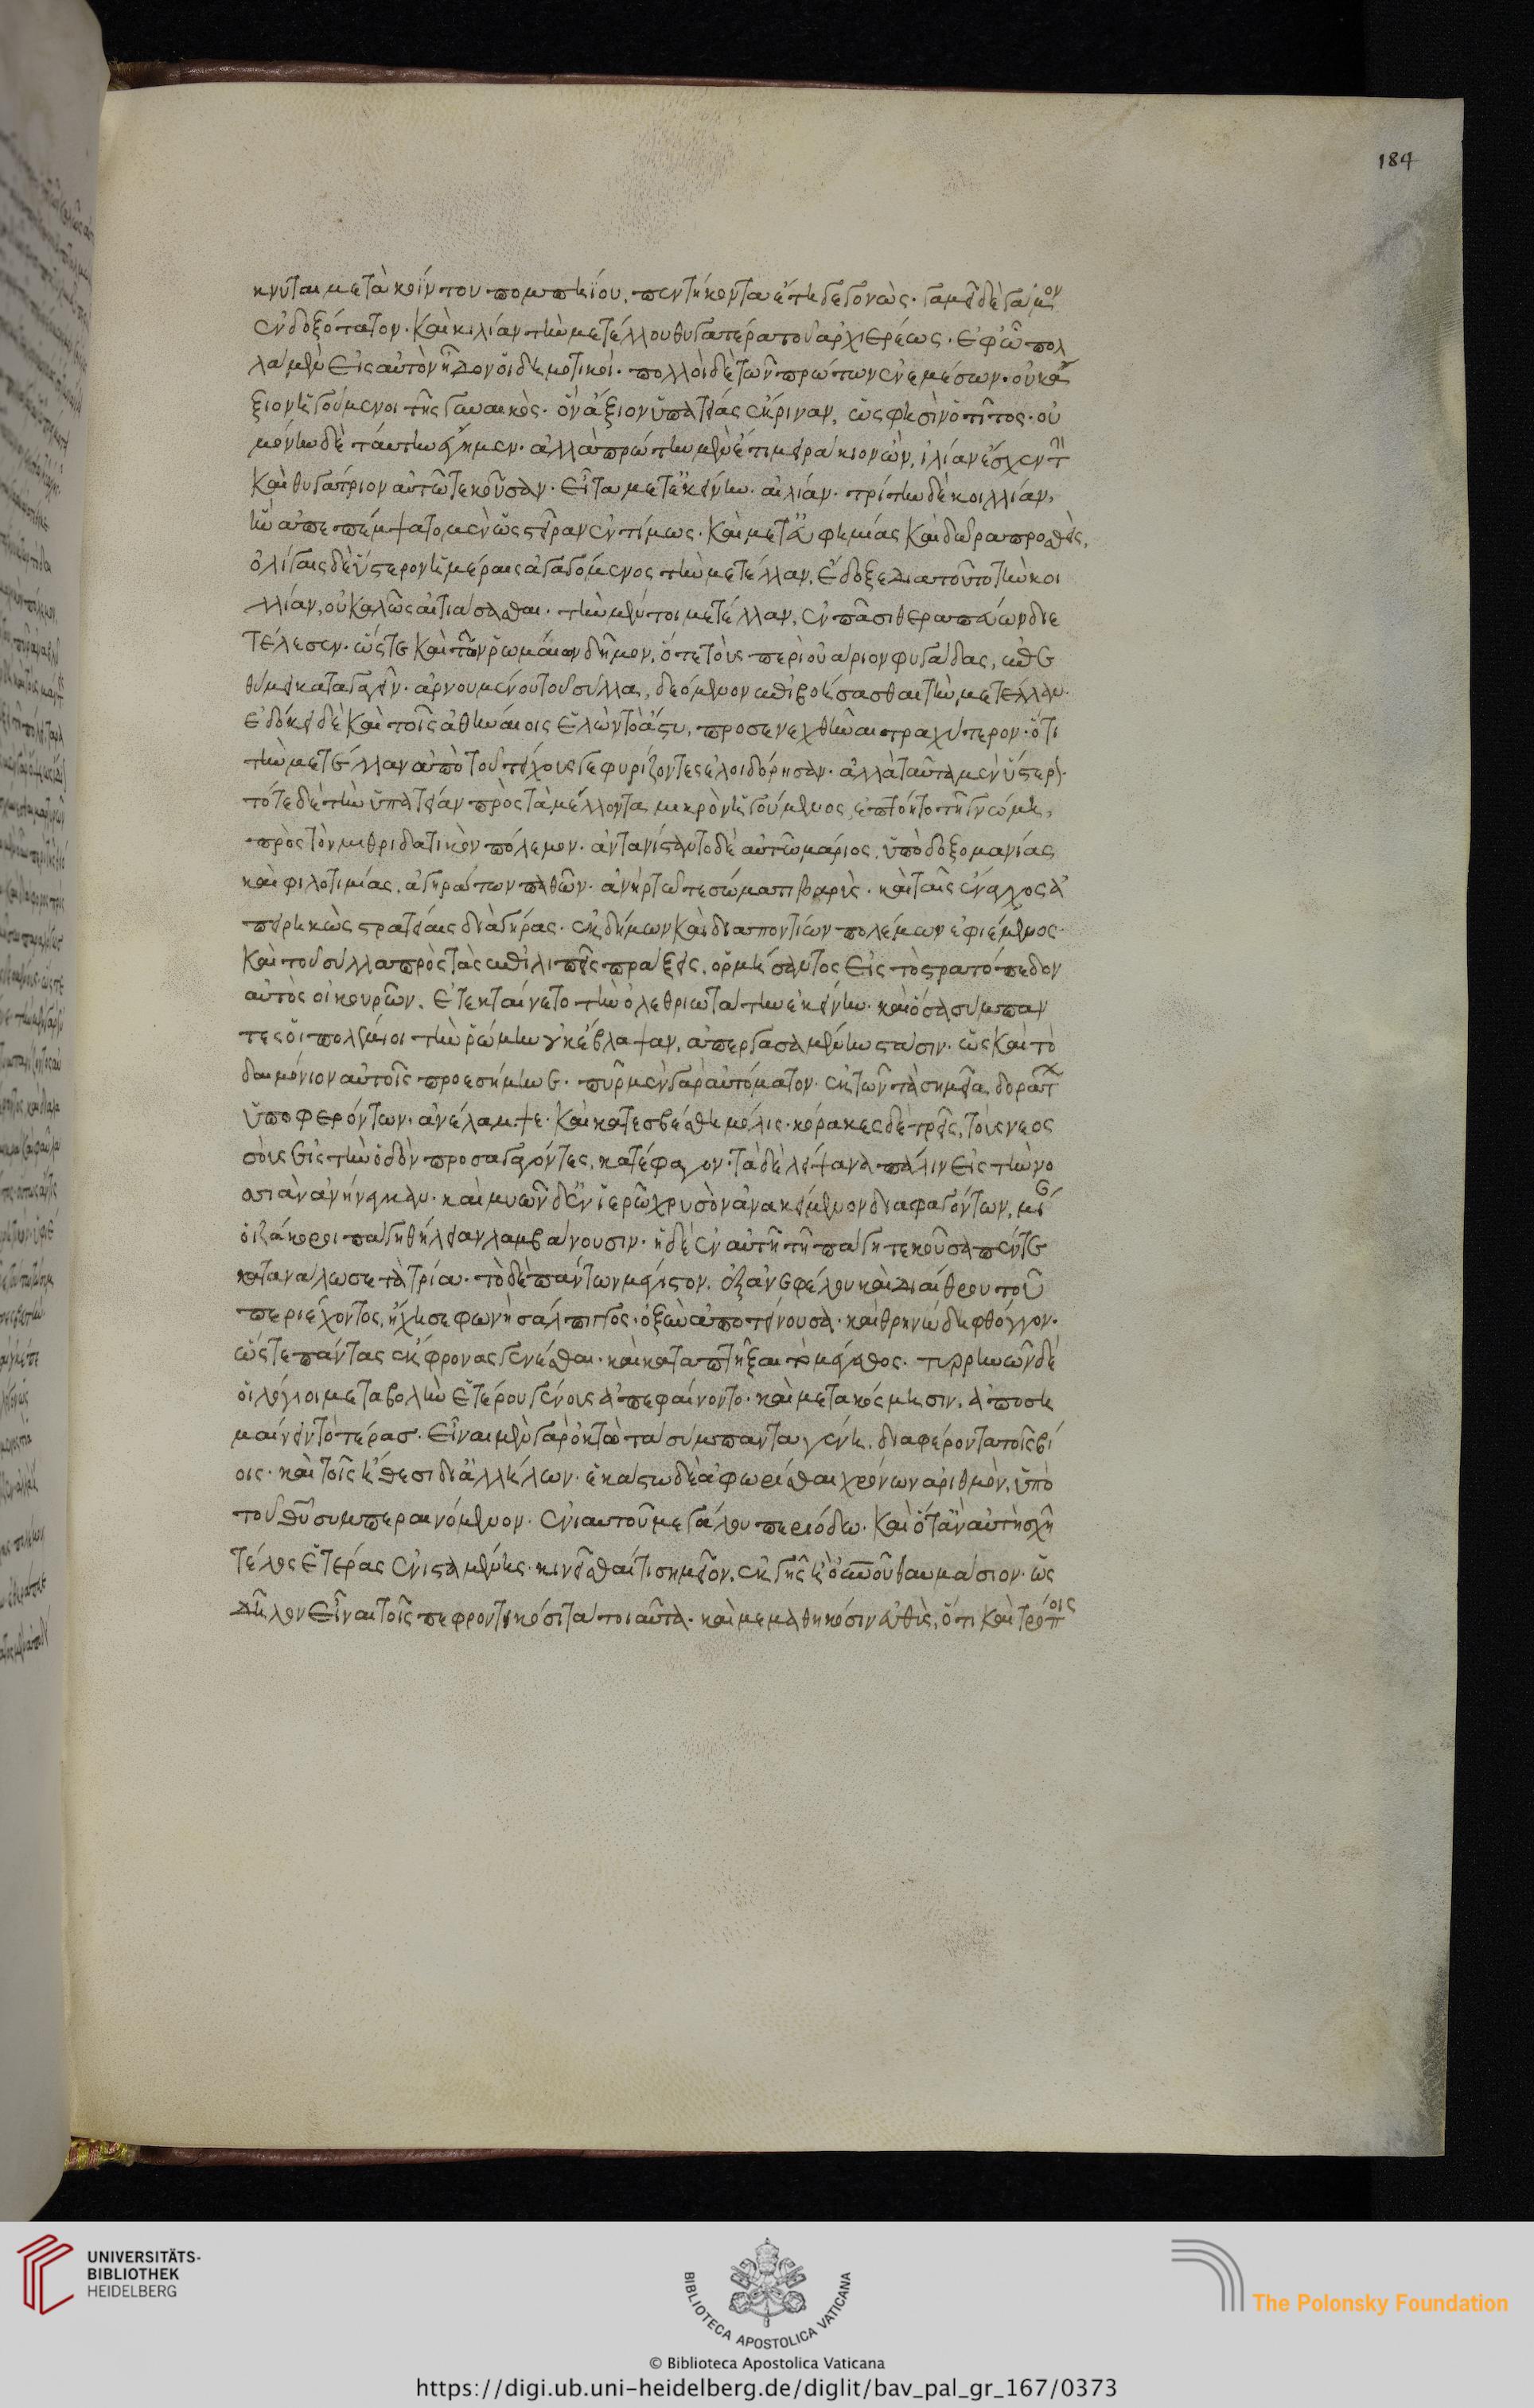 κνυται μετὰ κοΐντου πομπηΐου, πεντήκοντα ἔτη γεγονὼς· γαμεῖ δὲ γάμον
ἐνδοξότατον· καικιλίαν τὴν μετέλλου θυγατέρα τοῦ ἀρχιερέως· ἐφ' ὧ πολ
λὰ μὲν εἰς αὐτὸν ἦδον οἱ δημοτικοὶ· πολλοὶ δὲ τῶν πρώτων ἐνεμέσων· οὐκ ἄ
ξιον ἡγούμενοι τῆς γυναικὸς· ὃν ἄξιον ὑπατείας ἔκριναν, ὥς φησὶν ὁ τίτος· οὐ
μόνην δὲ ταύτην ἔγημεν· ἀλλὰ πρώτην μὲν ἔτι μειράκιον ὢν, ἰλίαν ἔσχεν τὴν
καὶ θυγάτριον αὐτῶ τεκοῦσαν· εἶτα μετ' ἐκείνην· αἰλίαν· τρίτην δὲ κοιλλίαν,
ἣν ἀπεπέμψατο μὲν ὡς στεῖραν ἐντίμως· καὶ μετ' εὐφημίας καὶ δῶρα προσθεὶς,
ὀλίγαις δὲ ὕστερον ἡμέραις ἀγαγόμενος τὴν μετέλλαν, ἔδοξε διὰ τοῦτο τὴν κοι
λλίαν, οὐ καλῶς αἰτιάσασθαι· τὴν μέντοι μετέλλαν, ἐν πᾶσι θεραπεύων διε
τέλεσεν· ὥστε καὶ τὸν ῥωμαίων δῆμον, ὅτε τοὺς περὶ οὐάριον φυγάδας, ἐπε
θύμει καταγαγεῖν· ἀρνουμένου τοῦ σύλλα, δεόμενον ἐπιβοήσασθαι τὴν μετέλλαν·
ἐδόκει δὲ καὶ τοῖς ἀθηναίοις ἑλὼν τὸ ἄστυ, προσενεχθῆναι τραχύτερον· ὅτι
τὴν μετέλλαν ἀπὸ τοῦ τείχους γεφυρίζοντες ἐλοιδόρησαν· ἀλλὰ ταῦτα μὲν ὕστερον·
τότε δὲ τὴν ὑπατείαν πρὸς τὰ μέλλοντα μικρὸν ἡγούμενος, ἐπτόητο τῆ γνώμη,
πρὸς τὸν μιθριδατικὸν πόλεμον· ἀντανίστατο δὲ αὐτῶ μάριος, ὑπὸ δοξομανίας
καὶ φιλοτιμίας, ἀγηράτων παθῶν· ἀνὴρ τῶ τε σώματι βαρὺς· καὶ ταῖς ἔναγχος ἀ
πειρηκὼς στρατείαις διὰ γῆρας· ἐκδήμων καὶ διαποντίων πολέμων ἐφιέμενος·
καὶ τοῦ σύλλα πρὸς τὰς ἐπιλιπεῖς πράξεις, ὁρμήσαντος εἰς τὸ στρατόπεδον
αὐτὸς οἰκουρῶν, ἐτεκταίνετο τὴν ὀλεθριωτάτην ἐκείνην· καὶ ὅσα σύμπαν
τες οἱ πολέμιοι τὴν ῥώμην οὐκ ἔβλαψαν, ἀπεργασαμένην στάσιν· ὡς καὶ τὸ
δαιμόνιον αὐτοῖς προεσήμηνε· πῦρ μὲν γὰρ αὐτόματον· ἐκ τῶν τὰ σημεῖα δοράτων
ὑποφερόντων· ἀνέλαμψε· καὶ κατεσβέσθη μόλις· κόρακες δὲ τρεῖς, τοὺς νεος
σοὺς εἰς τὴν ὁδὸν προσαγαγόντες, κατέφαγον· τὰ δὲ λείψανα πάλιν εἰς τὴν νο
σσιὰν ἀνήνεγκαν· καὶ μυῶν δ' ἐν ἱερῶ χρυσὸν ἀνακείμενον διαφαγόντων, μίαν
οἱ ζάκοροι πάγη θήλειαν λαμβάνουσιν· ἡ δὲ ἐν αὐτῆ τῆ πάγη τεκοῦσα πέντε
κατανάλωσε τὰ τρία· τὸ δὲ πάντων μέγιστον, ἐξ ἀνεφέλου καὶ διαίθρου τοῦ
περιέχοντος, ἤχησε φωνὴ σάλπιγγος· ὀξὺν ἀποτείνουσα· καὶ θρηνώδη φθόγγον·
ὥστε πάντας ἔκφρονας γενέσθαι· καὶ καταπτῆξαι τὸ μέγεθος· τυρρηνῶν δὲ
οἱ λόγιοι μεταβολὴν ἑτέρου γένους ἀπεφαίνοντο· καὶ μετακόσμησιν, ἀποση
μαίνειν τὸ τέρας· εἶναι μὲν γὰρ ὀκτὼ τὰ σύμπαντα γένη, διαφέροντα τοῖς βί
οις· καὶ τοῖς ἤθεσι δι' ἀλλήλων· ἑκάστω δὲ ἀφωρίσθαι χρόνων ἀριθμὸν, ὑπὸ
τοῦ θῦ συμπεραινόμενον· ἐνιαυτοῦ μεγάλου περιόδω· καὶ ὅταν αὐτὴ σχῆ
τέλος ἑτέρας ἐνισταμένης· κινεῖσθαί τι σημεῖον, ἐκ γῆς ἢ οὐνοῦ θαυμάσιον· ὡς
δῆλον εἶναι τοῖς πεφροντικόσι τὰ τοιαῦτα· καὶ μεμαθηκόσιν εὐθὺς, ὅτι καὶ τρόποις
184
UNIVERSITÄTS-
BIBLIOTHEK
HEIDELBERG
BIBLIOTECA APOSTOLICA VATICANA
The Polonsky Foundation
© Biblioteca Apostolica Vaticana
https://digi.ub.uni-heidelberg.de/diglit/bav_pal_gr_167/0373